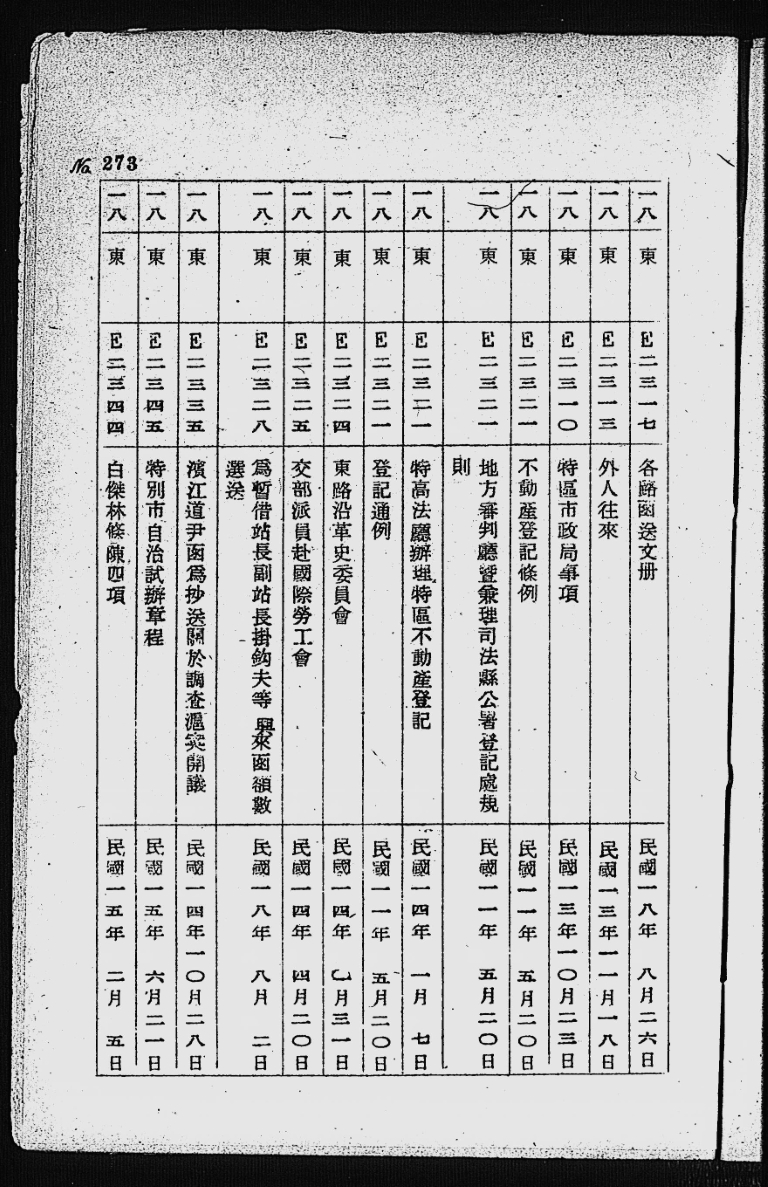 No. 273
一八 東 E二三一七 各路函送文册 民國一八年 八月二六日
一八 東 E二三一三 外人往來 民國一三年一一月一八日
一八 東 E二三一〇 特區市政局事項 民國一三年一〇月二三日
一八 東 E二三二一 不動產登記條例 民國一一年 五月二〇日
一八 東 E二三二一 地方審判廳暨兼理司法縣公署登記處規
則 民國一一年 五月二〇日
一八 東 E二三二一 特高法廳辦理特區不動產登記 民國一四年 一月 七日
一八 東 E二三二一 登記通例 民國一一年 五月二〇日
一八 東 E二三二四 東路沿革史委員會 民國一四年 月三一日
一八 東 E二三二五 交部派員赴國際勞工會 民國一四年 四月二〇日
一八 東 E二三二八 爲暫借站長副站長掛鈎夫等與來函額數
選送 民國一八年 八月 二日
一八 東 E二三三五 濱江道尹函爲抄送關於調查滬案開議 民國一四年一〇月二八日
一八 東 E二三四五 特別市自治試辦章程 民國一五年 六月二一日
一八 東 E二三四四 白傑林條陳四項 民國一五年 二月 五日